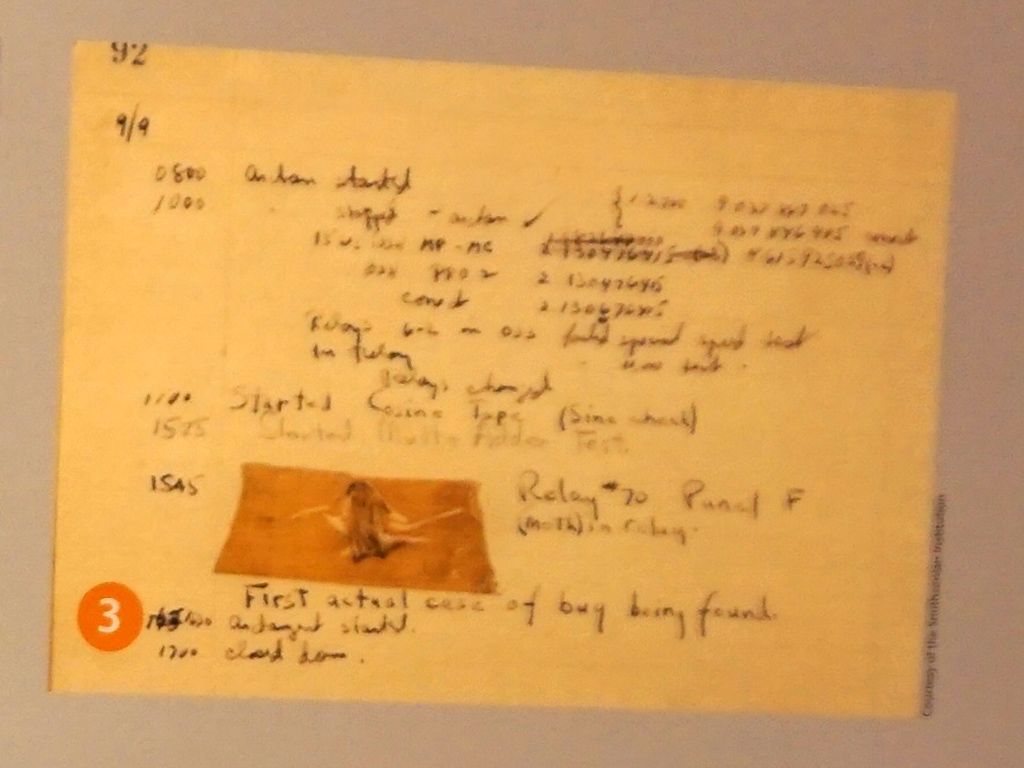 92
9/9
0800 antan started
1000 stopped - antan ✓
13" MP - MC
033 PRO 2 2.130476415
correct 2.130676415
Relays 6-2 in 033 failed special speed test
In Relay test.
Relays changed
1100 Started Cosine Tape (Sine check)
1525 Started Mult+Adder Test.
1545 Relay #70 Panel F
(moth) in relay.
First actual case of bug being found.
antangent started.
1700 closed down.
3
Courtesy of the Smithsonian Institution